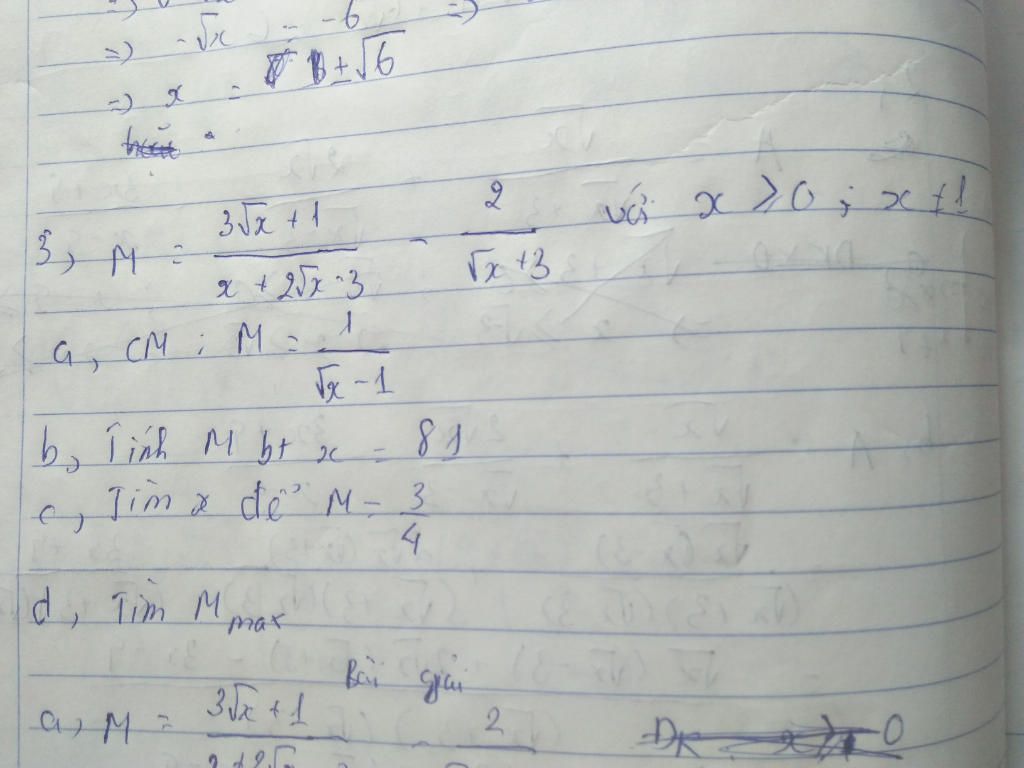 =) -√x = -6 =)
=) x = ±√6
3, M = (3√x + 1)/(x + 2√x - 3) - 2/(√x + 3) với x ⩾ 0 ; x ≠ 1
a, CM : M = 1/(√x - 1)
b, Tính M bt x = 81
c, Tìm x để M = 3/4
d, Tìm M max
Bài giải
a, M = (3√x + 1) - 2